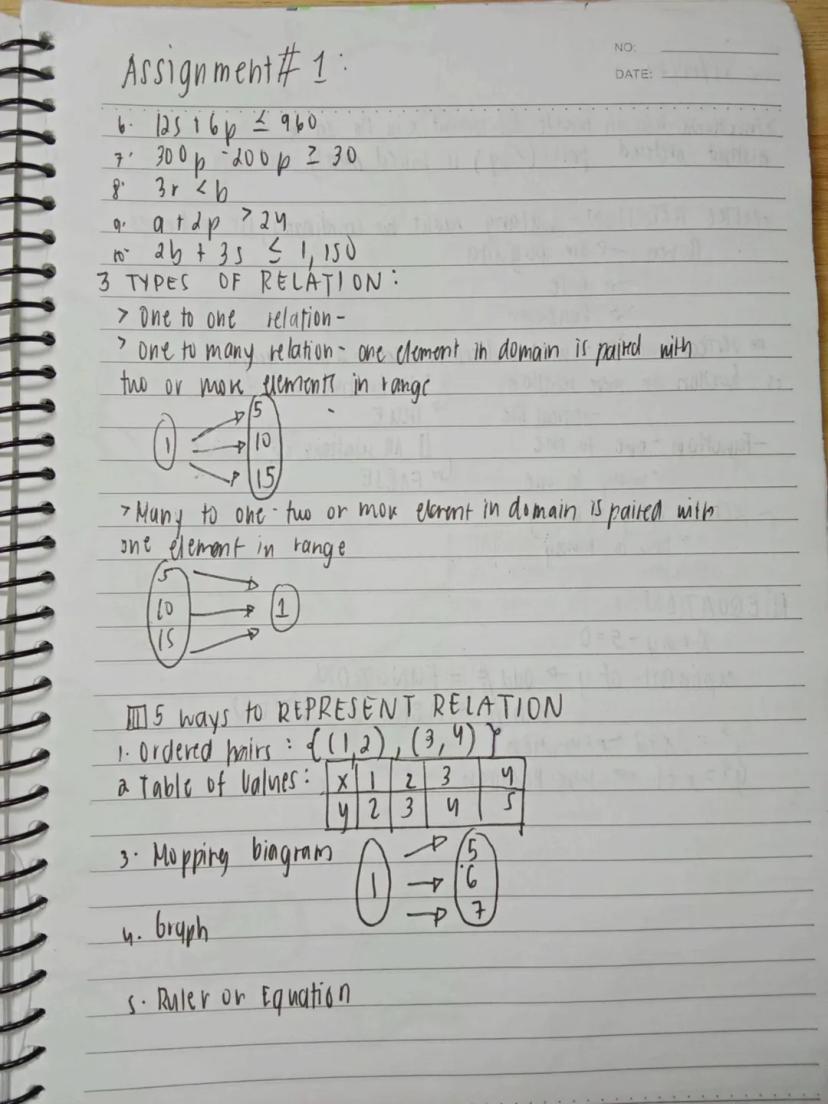 NO:
DATE:
Assignment # 1:
6. 12s + 6p ≤ 960
7. 300p - 200p ≥ 30
8. 3r < b
9. a + 2p > 24
10. 2b + 3s ≤ 1,150
3 TYPES OF RELATION:
> One to one relation-
> One to many relation - one element in domain is paired with
two or more elements in range
1
5
10
15
> Many to one - two or more element in domain is paired with
one element in range
5
10
15
1
III 5 ways to REPRESENT RELATION
1. Ordered pairs : {(1,2), (3,4)}
2 Table of Values: x 1 2 3 4
y 2 3 4 5
3. Mopping biagram
1
5
6
7
4. Graph
5. Ruler or Equation